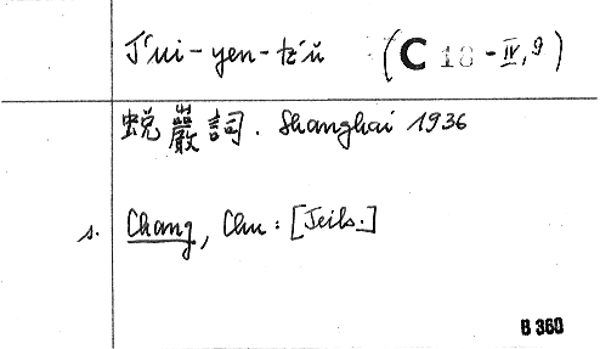 T'ui-yen-tz'ŭ (C 18 - IV, 9)
蛻巖詞. Shanghai 1936
s. Chang, Chu: [Teils.]
B 360